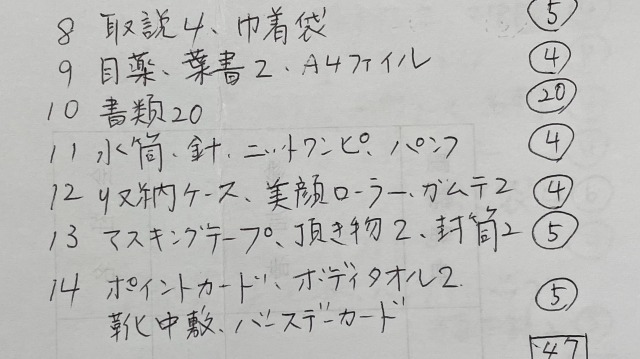 8 取説4、巾着袋 ⑤
9 目薬、葉書2、A4ファイル ④
10 書類20 ⑳
11 水筒、針、ニットワンピ、パンフ ④
12 収納ケース、美顔ローラー、ガムテ2 ④
13 マスキングテープ、頂き物2、封筒2 ⑤
14 ポイントカード、ボディタオル2 ⑤
靴中敷、バースデーカード
47